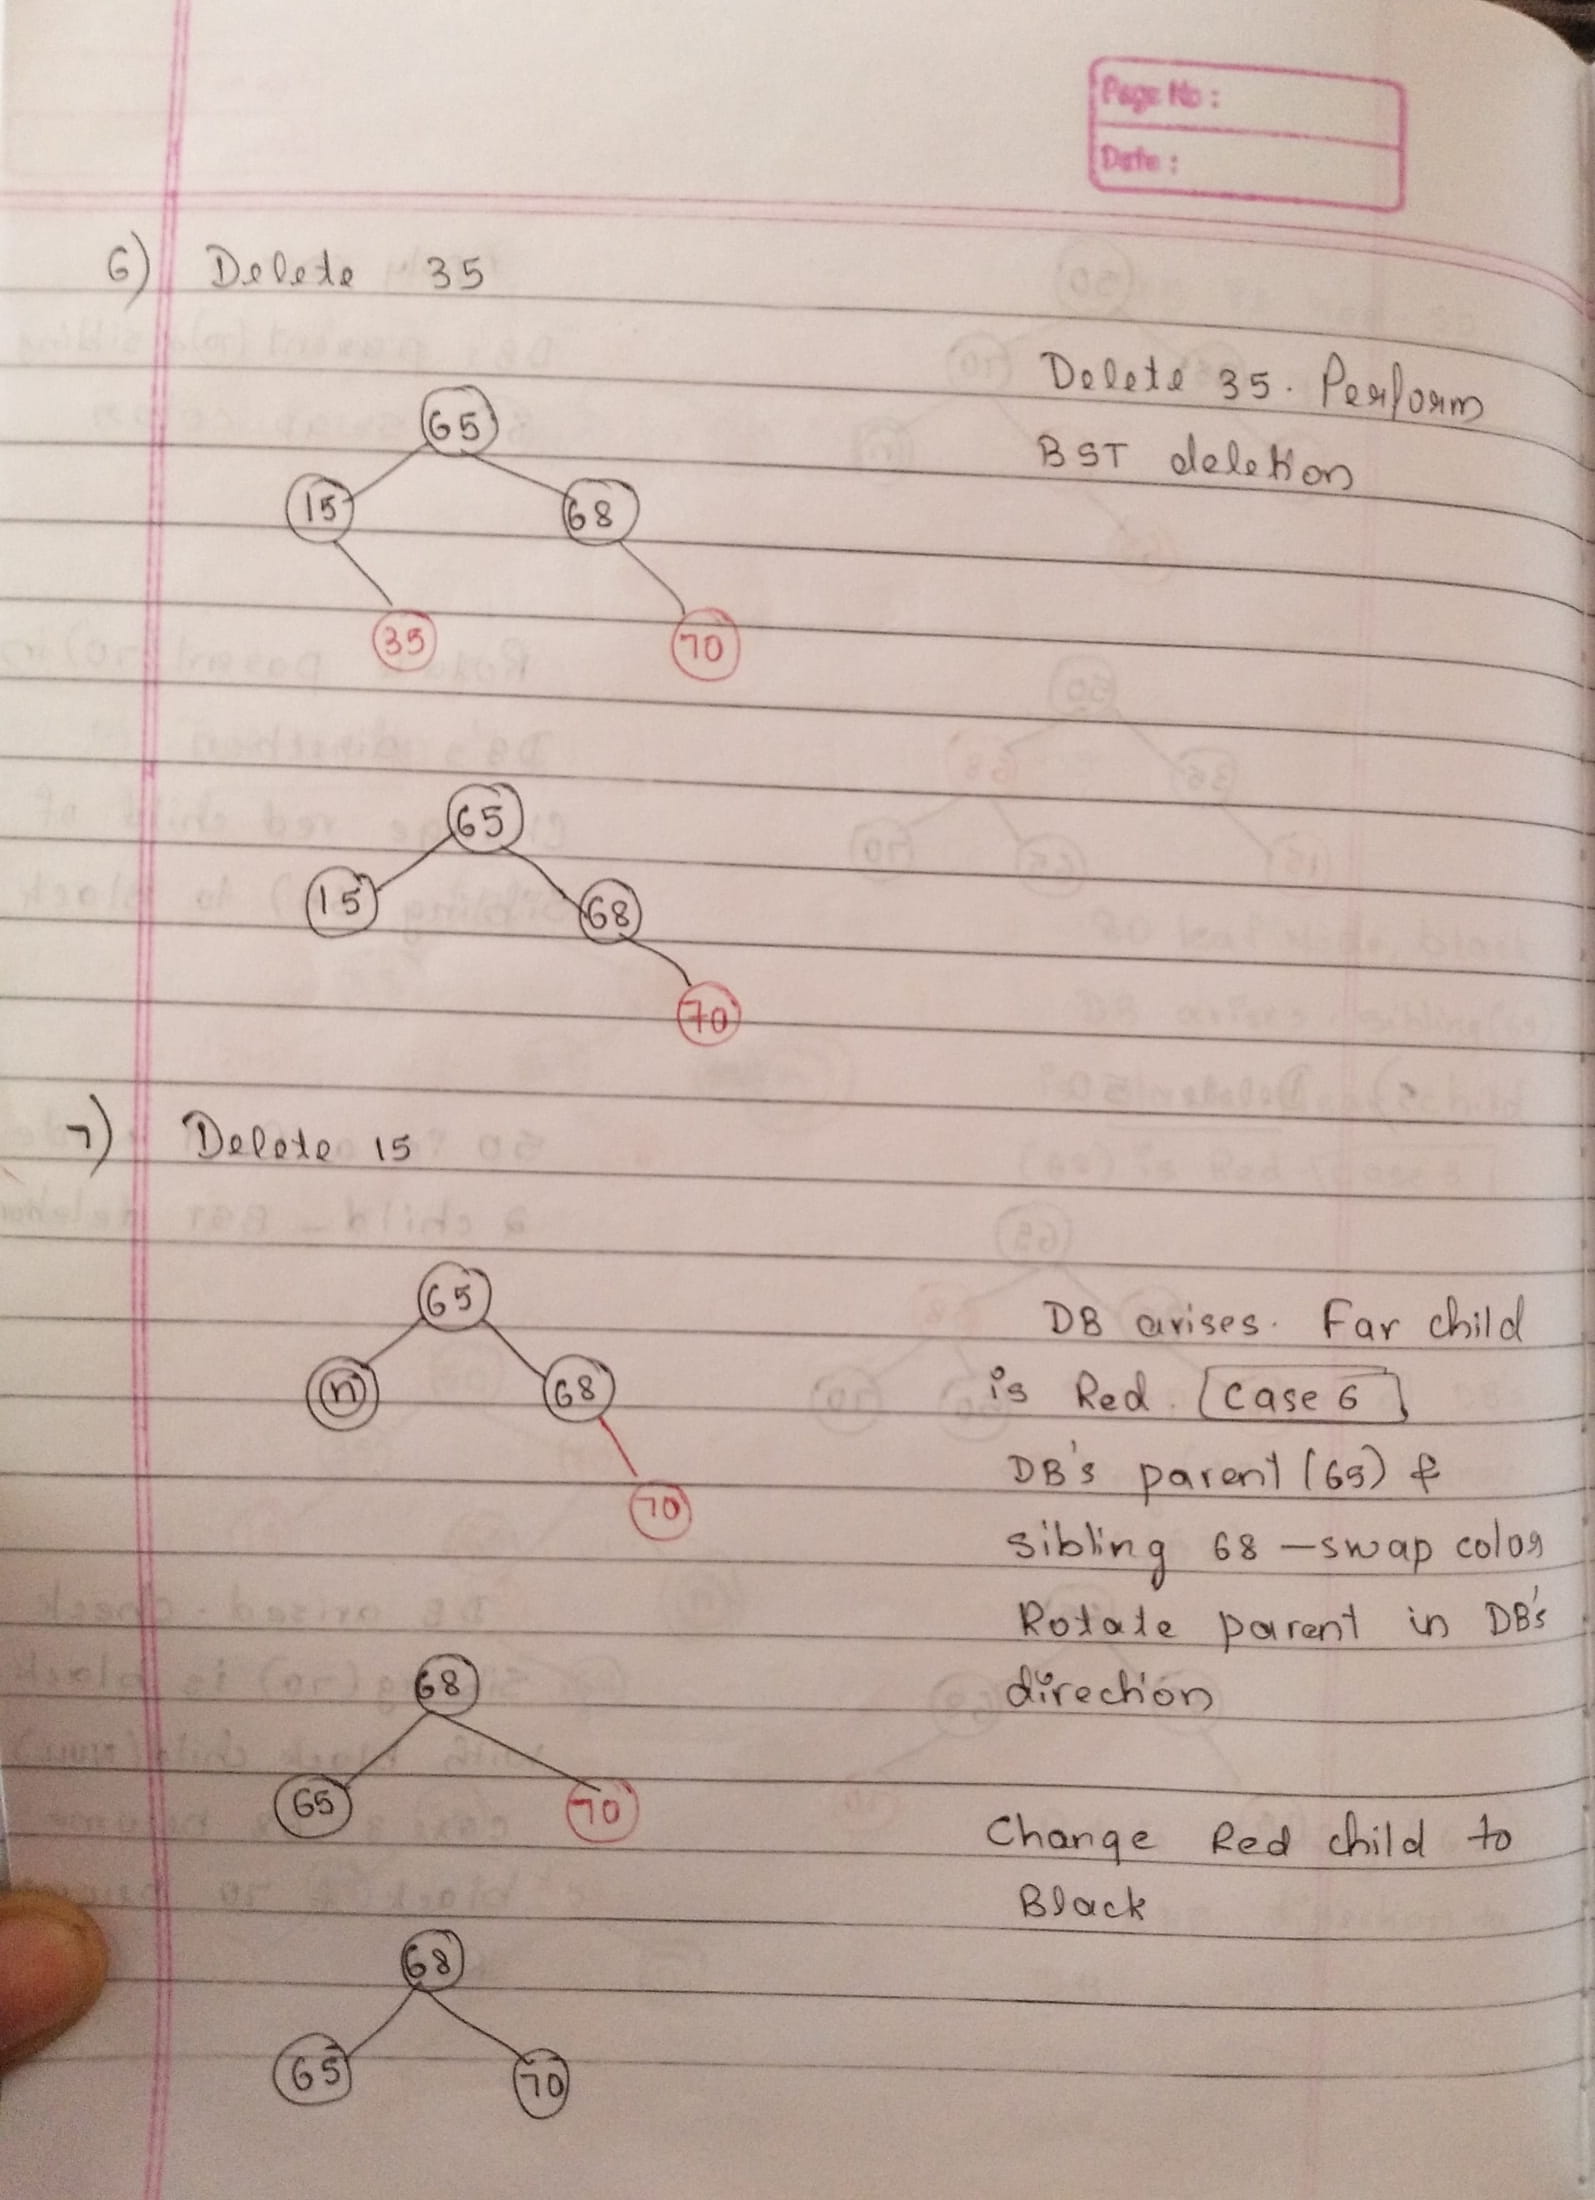 Page No :
Date :
6) Delete 35
Delete 35. Perform
BST deletion
65
15 68
35 70
65
15 68
70
7) Delete 15
65
n 68
70
DB arises. Far child
is Red. Case 6
DB's parent (65) &
sibling 68 – swap color
Rotate parent in DB's
direction
68
65 70
Change Red child to
Black
68
65 70